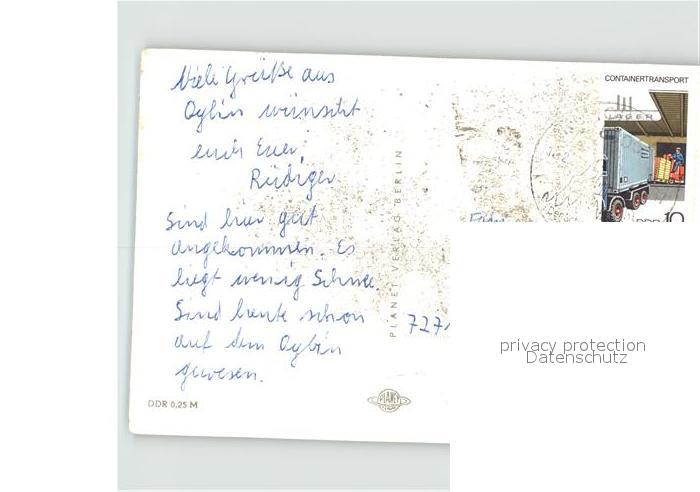 Viele Grüße aus
Oybin wünscht
euch Euer
Rüdiger
Sind hier gut
angekommen. Es
liegt wenig Schnee
Sind heute schon
auf dem Oybin
gewesen.
DDR 0,25 M
PLANET VERLAG BERLIN
PLANET
CONTAINERTRANSPORT
LAGER
DDR 10
Fam
727
privacy protection
Datenschutz